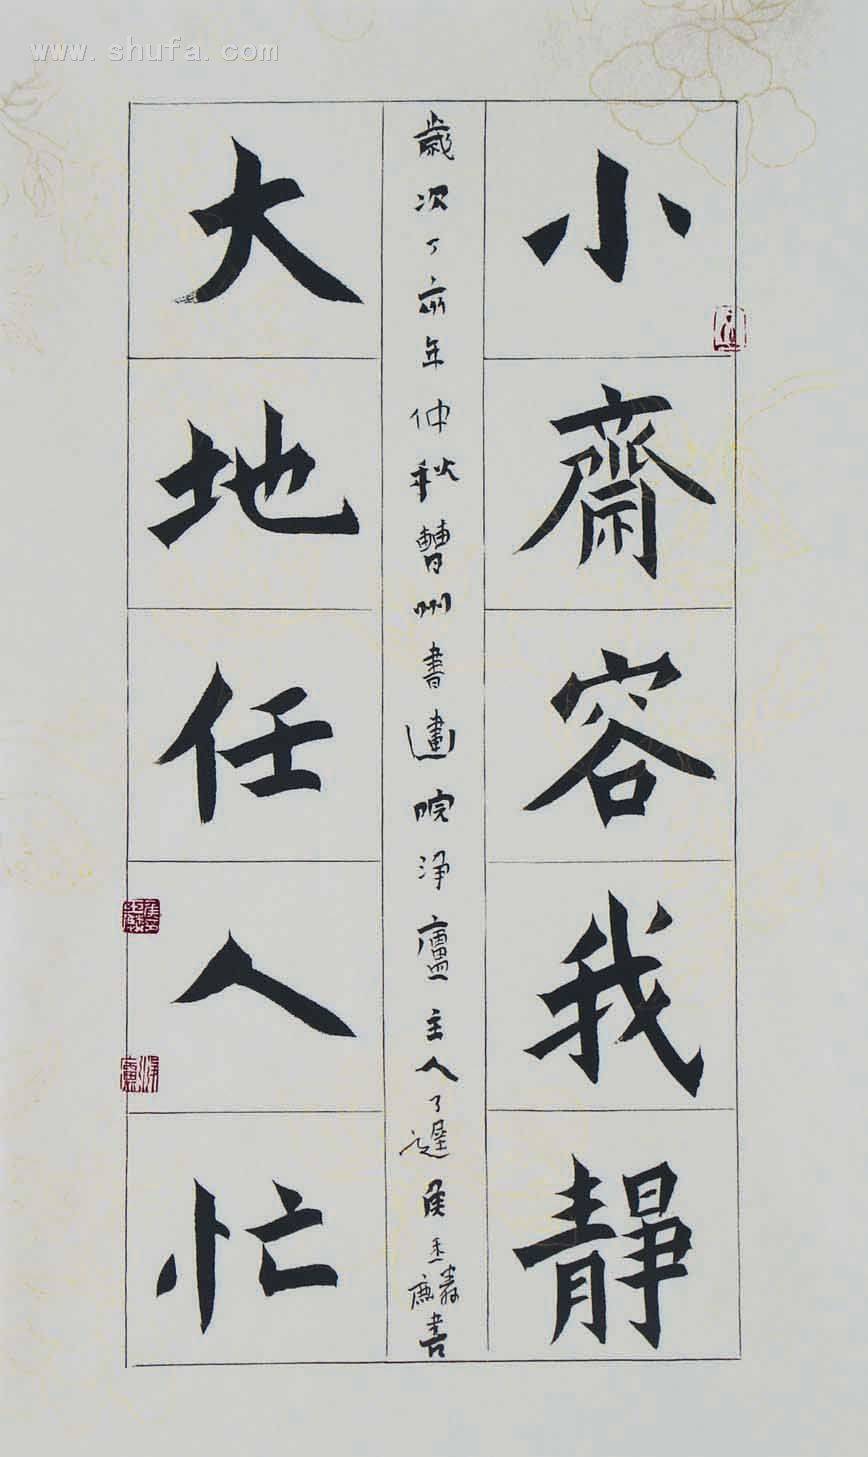 www.shufa.com
小齋容我靜
歲次丁亥年仲秋曹州書畫院淨廬主人了遲侯玉麟書
大地任人忙